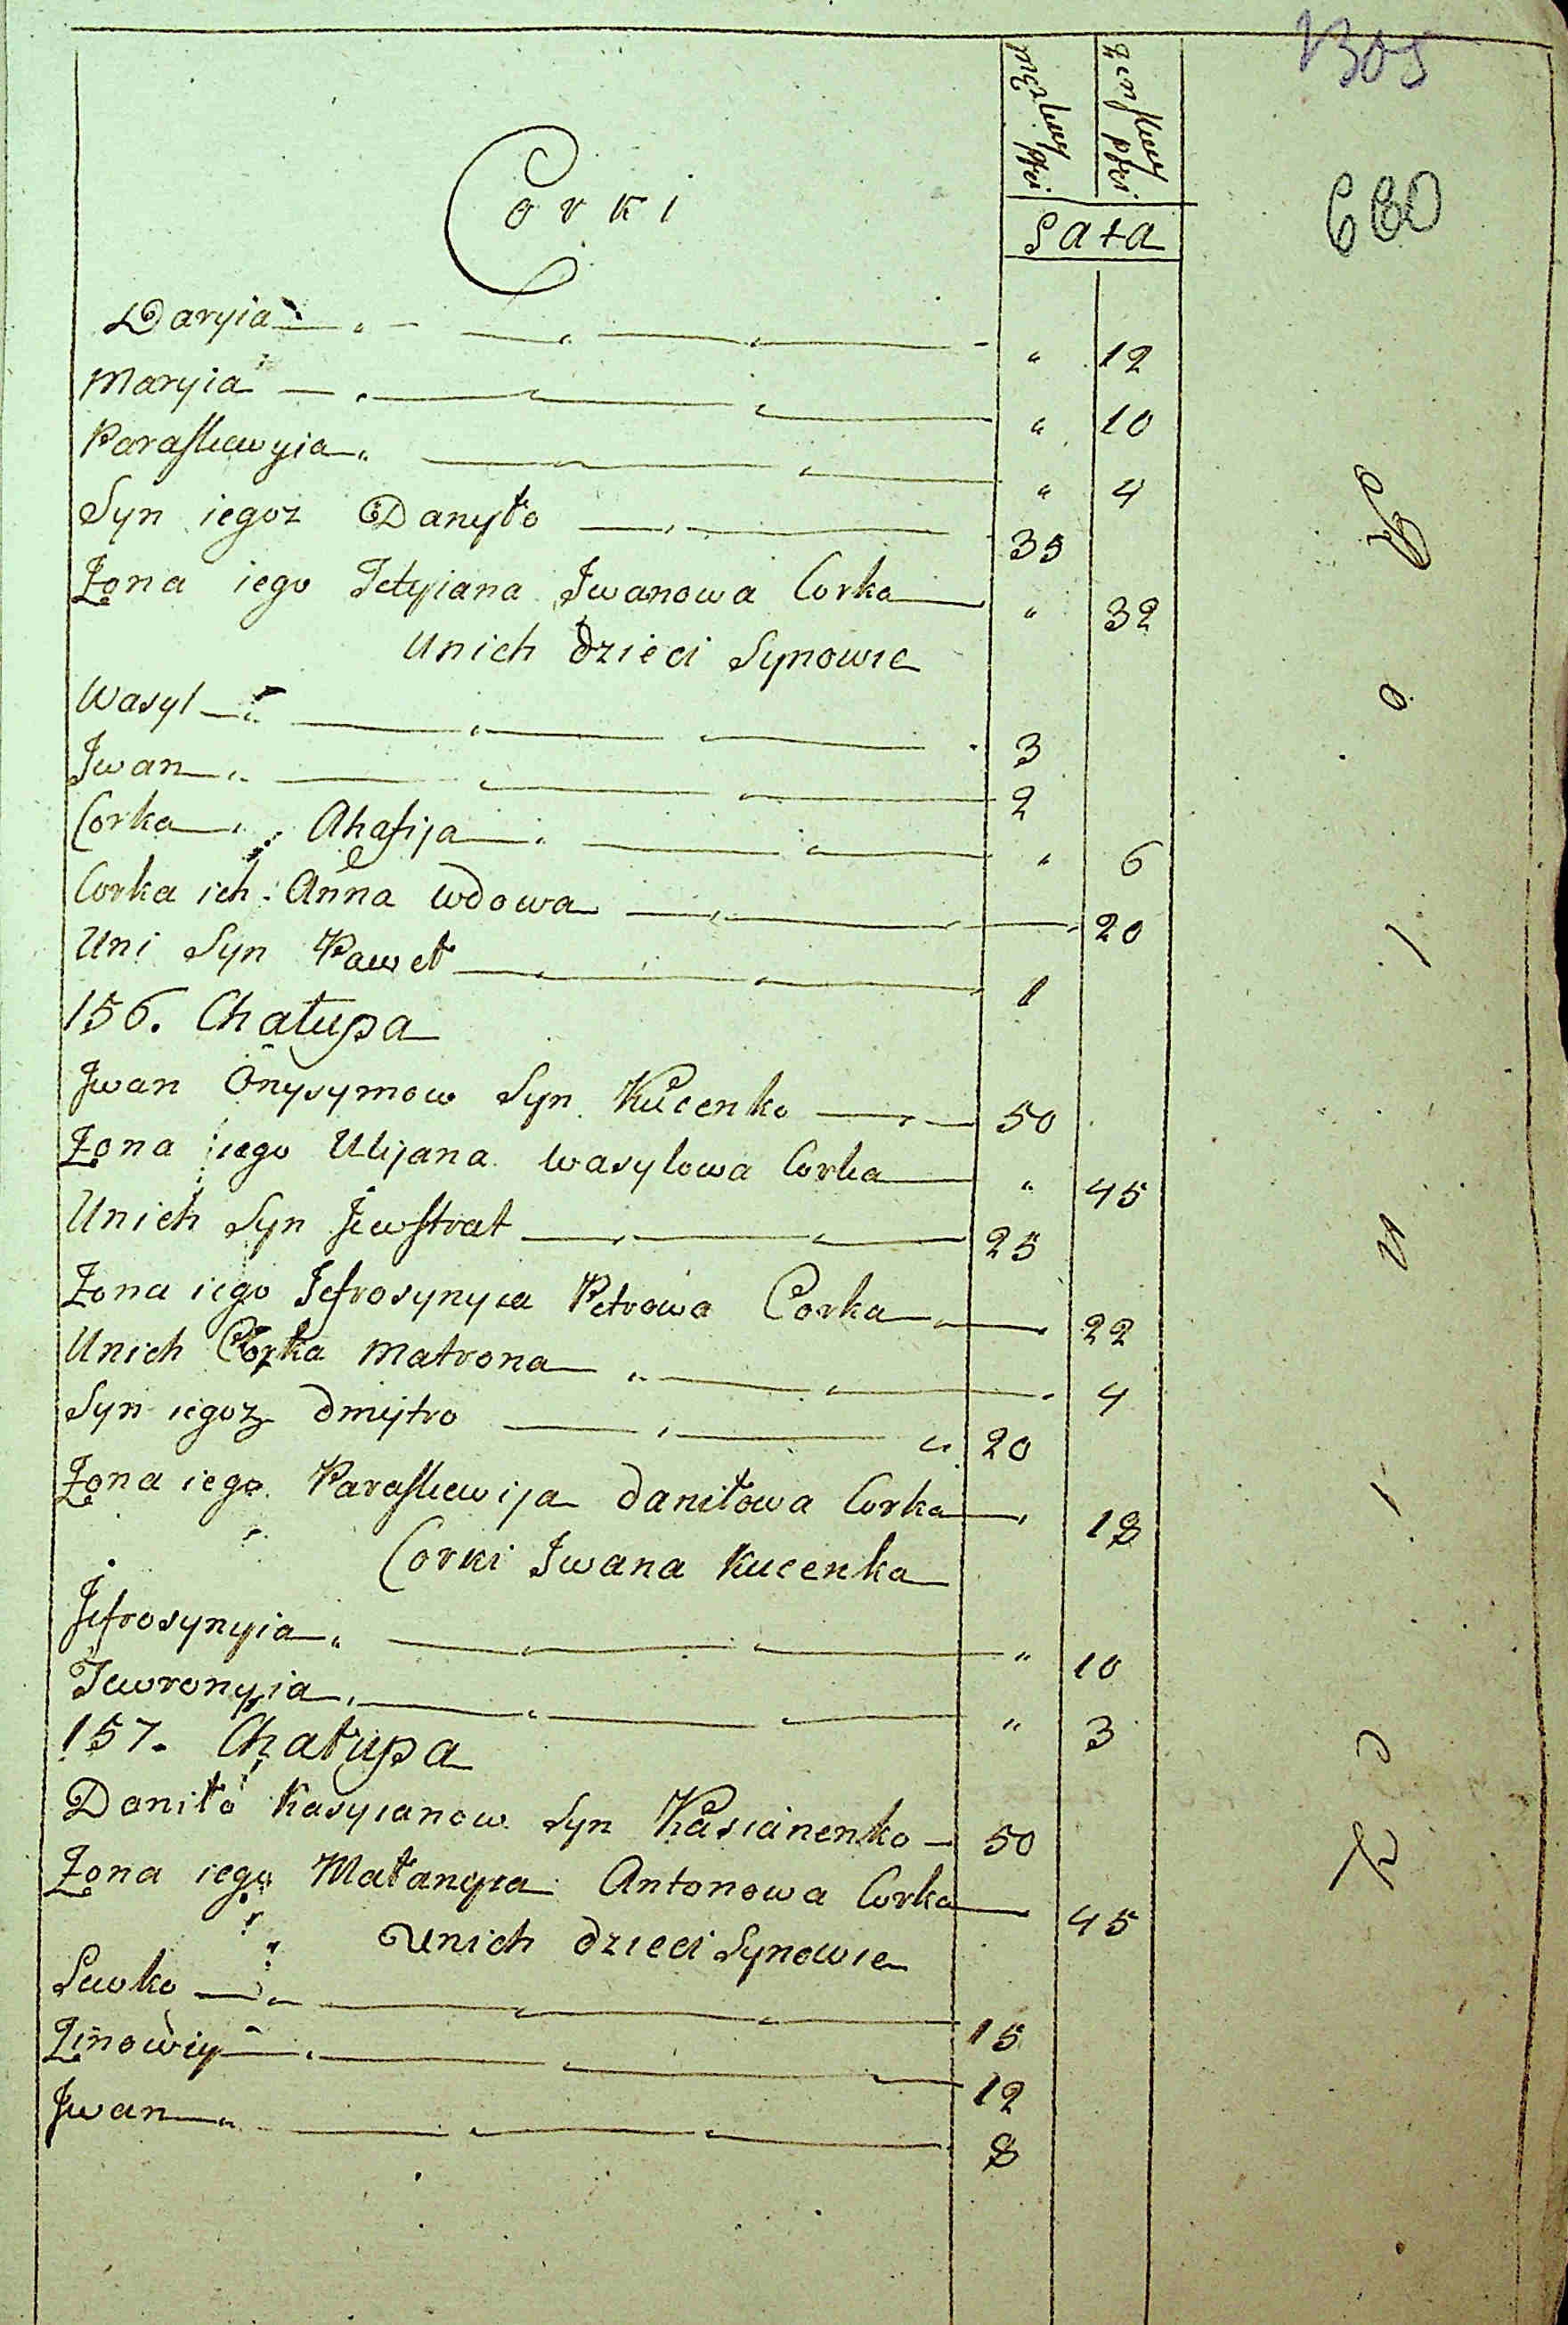 1305
660
męzkiey płci
żenskiey płci
Lata
Corki
Daryia " 12
Maryia " 10
Paraskewyia " 4
Syn iegoz Danyło 35
Żona iego Tetyiana Jwanowa Corka " 32
Unich dzieci Synowie
Wasyl 3
Jwan 2
Corka Ahafija " 6
Corka ich Anna wdowa 20
Uni Syn Paweł 1
156. Chałupa
Jwan Onysymow Syn Kucenko 50
Żona iego Ulijana Wasylowa Corka " 45
Unich Syn Jewstrat 25
Żona iego Jefrosynyia Petrowa Corka 22
Unich Corka Matrona 4
Syn iegoz Dmytro 20
Żona iego Paraskewija Daniłowa Corka 18
Corki Jwana Kucenka
Jefrosynyia " 10
Jewronyia " 3
157. Chałupa
Daniło Kasyianow Syn Kasianenko 50
Żona iego Małanyia Antonowa Corka 45
Unich dzieci Synowie
Lewko 15
Zinowiy 12
Jwan 8